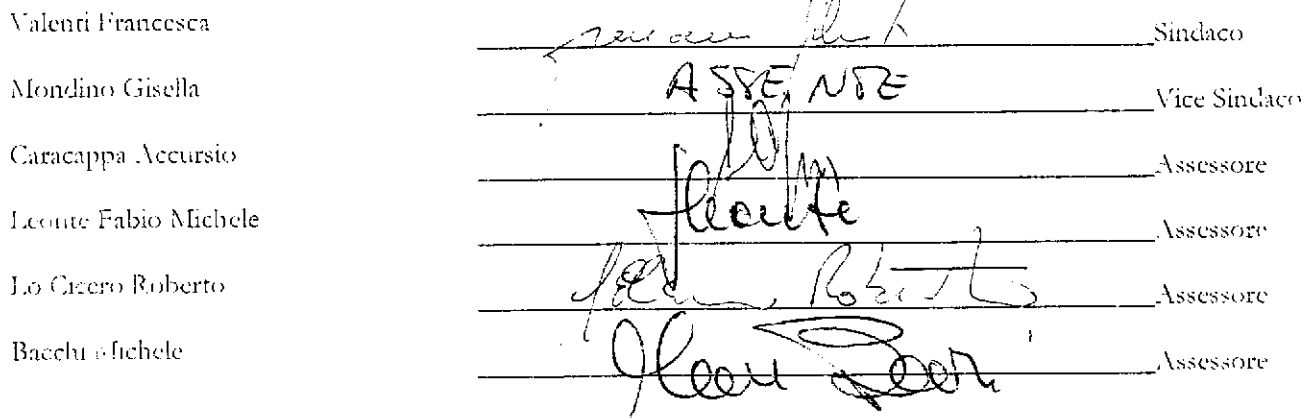 Valenti Francesca Sindaco
Mondino Gisella ASSENTE Vice Sindaco
Caracappa Accursio Assessore
Leonte Fabio Michele Leonte Assessore
Lo Cicero Roberto Roberto Assessore
Bacchi Michele Assessore